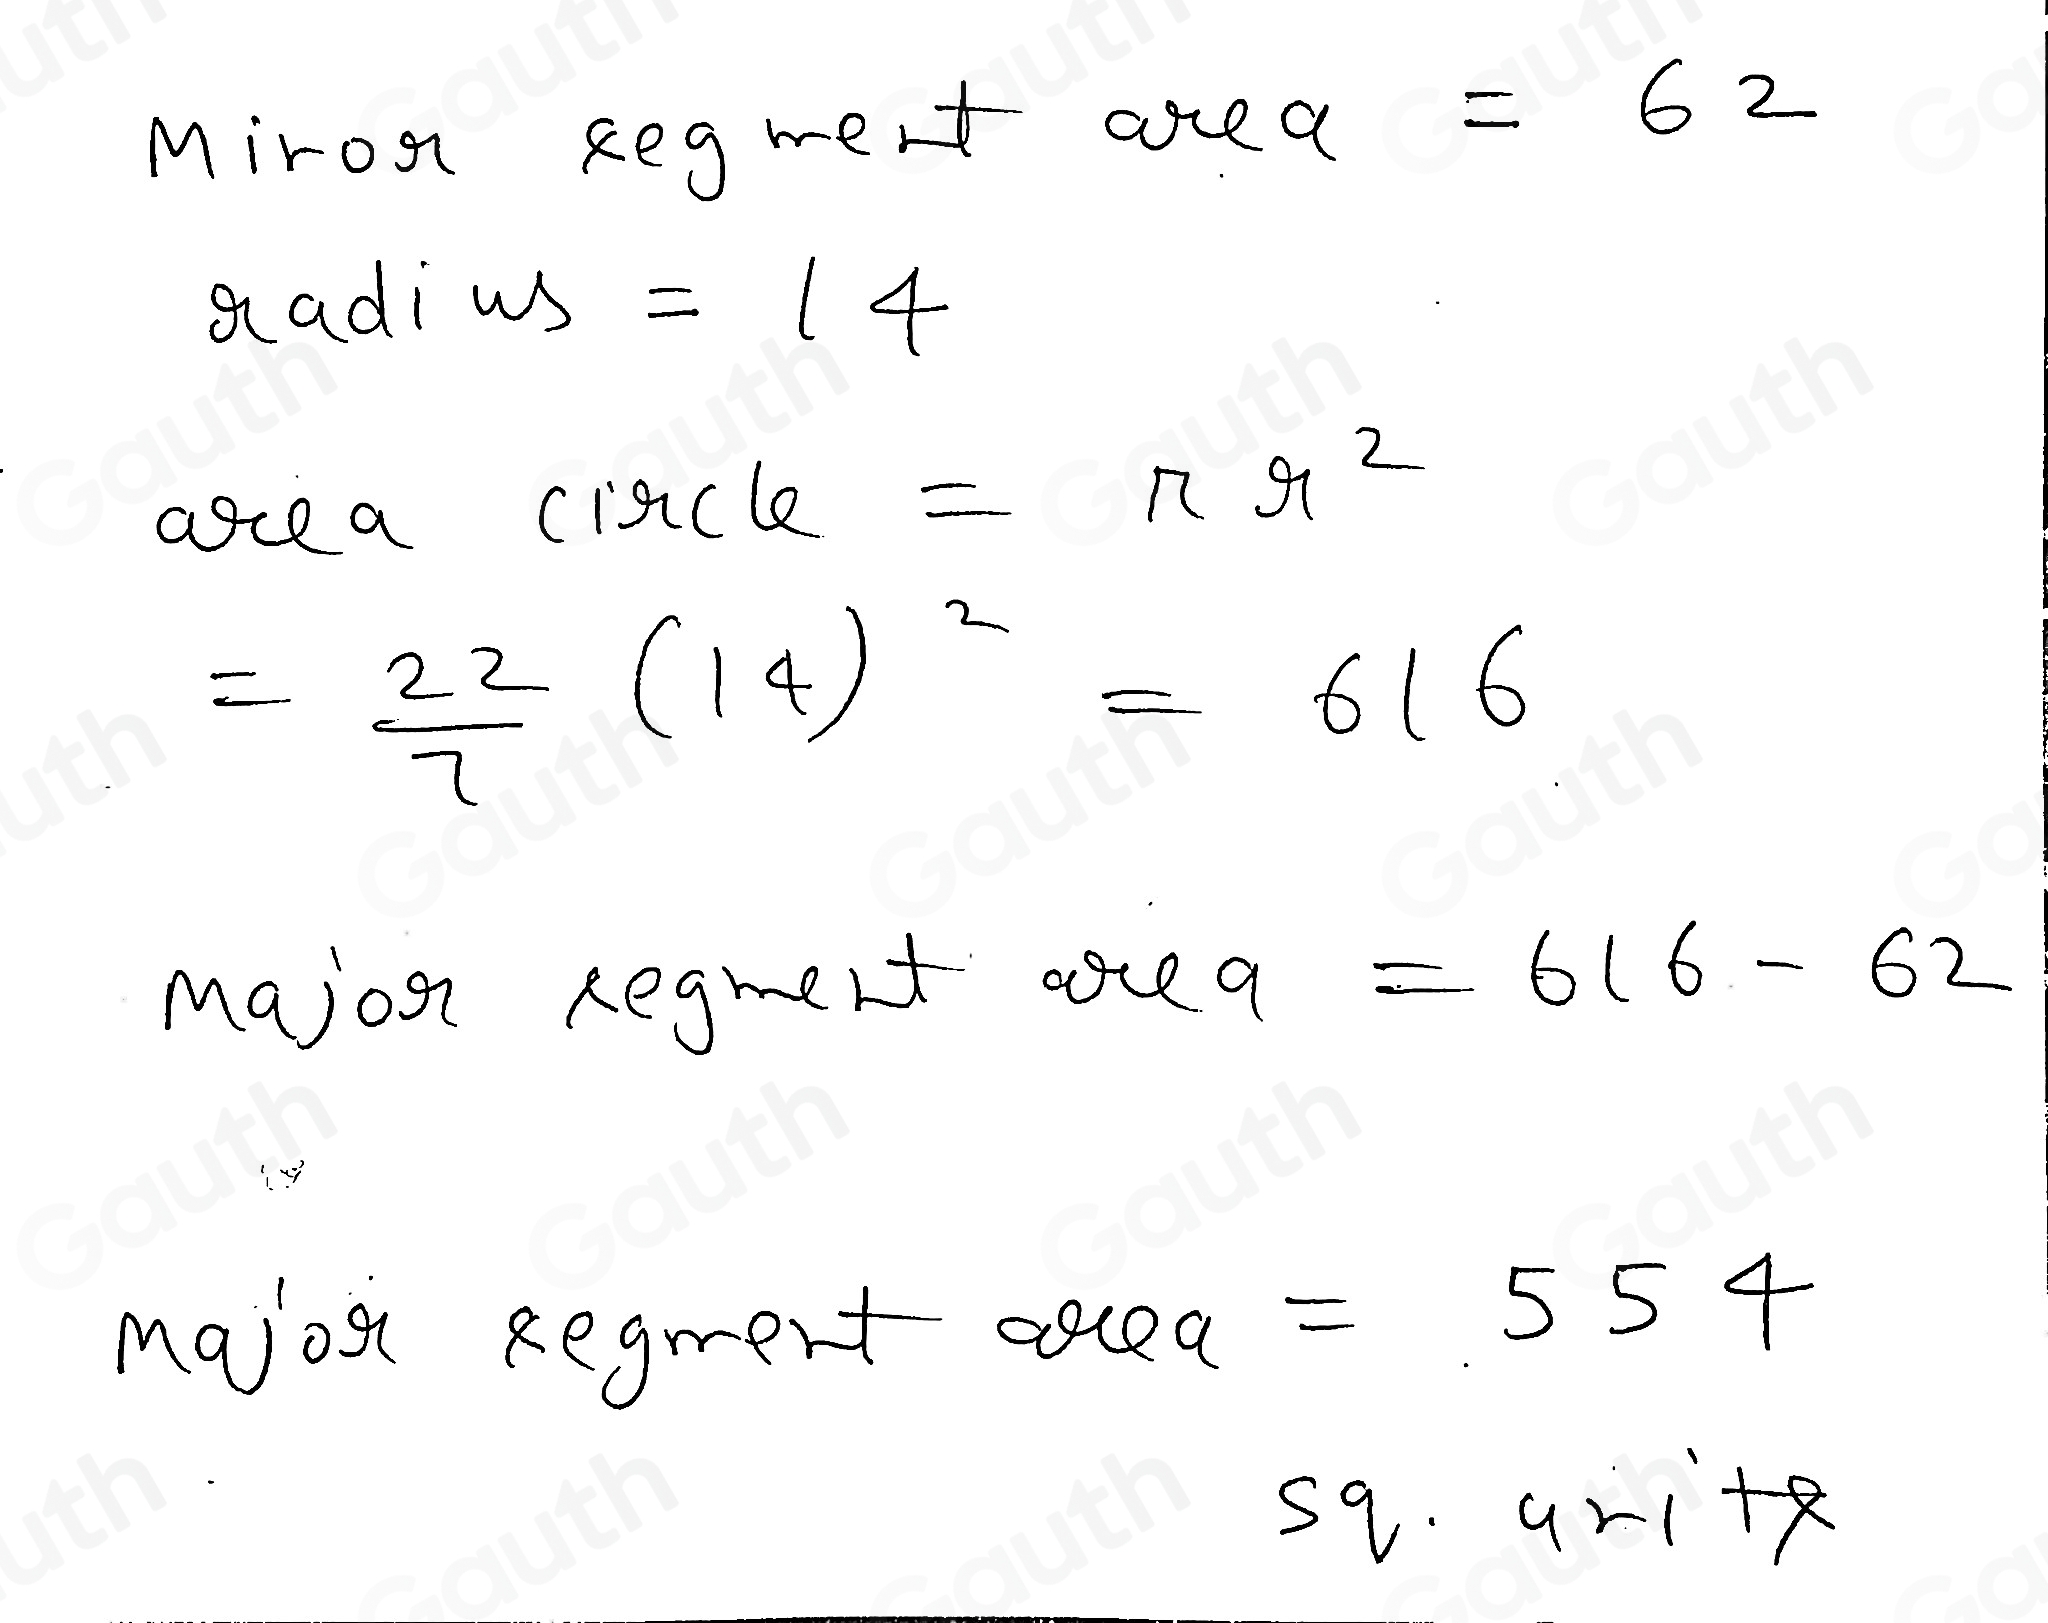 Minor segment area = 62
radius = 14
area circle = π r²
= 22/7 (14)² = 616
Major segment area = 616 - 62
Major segment area = 554
sq. units